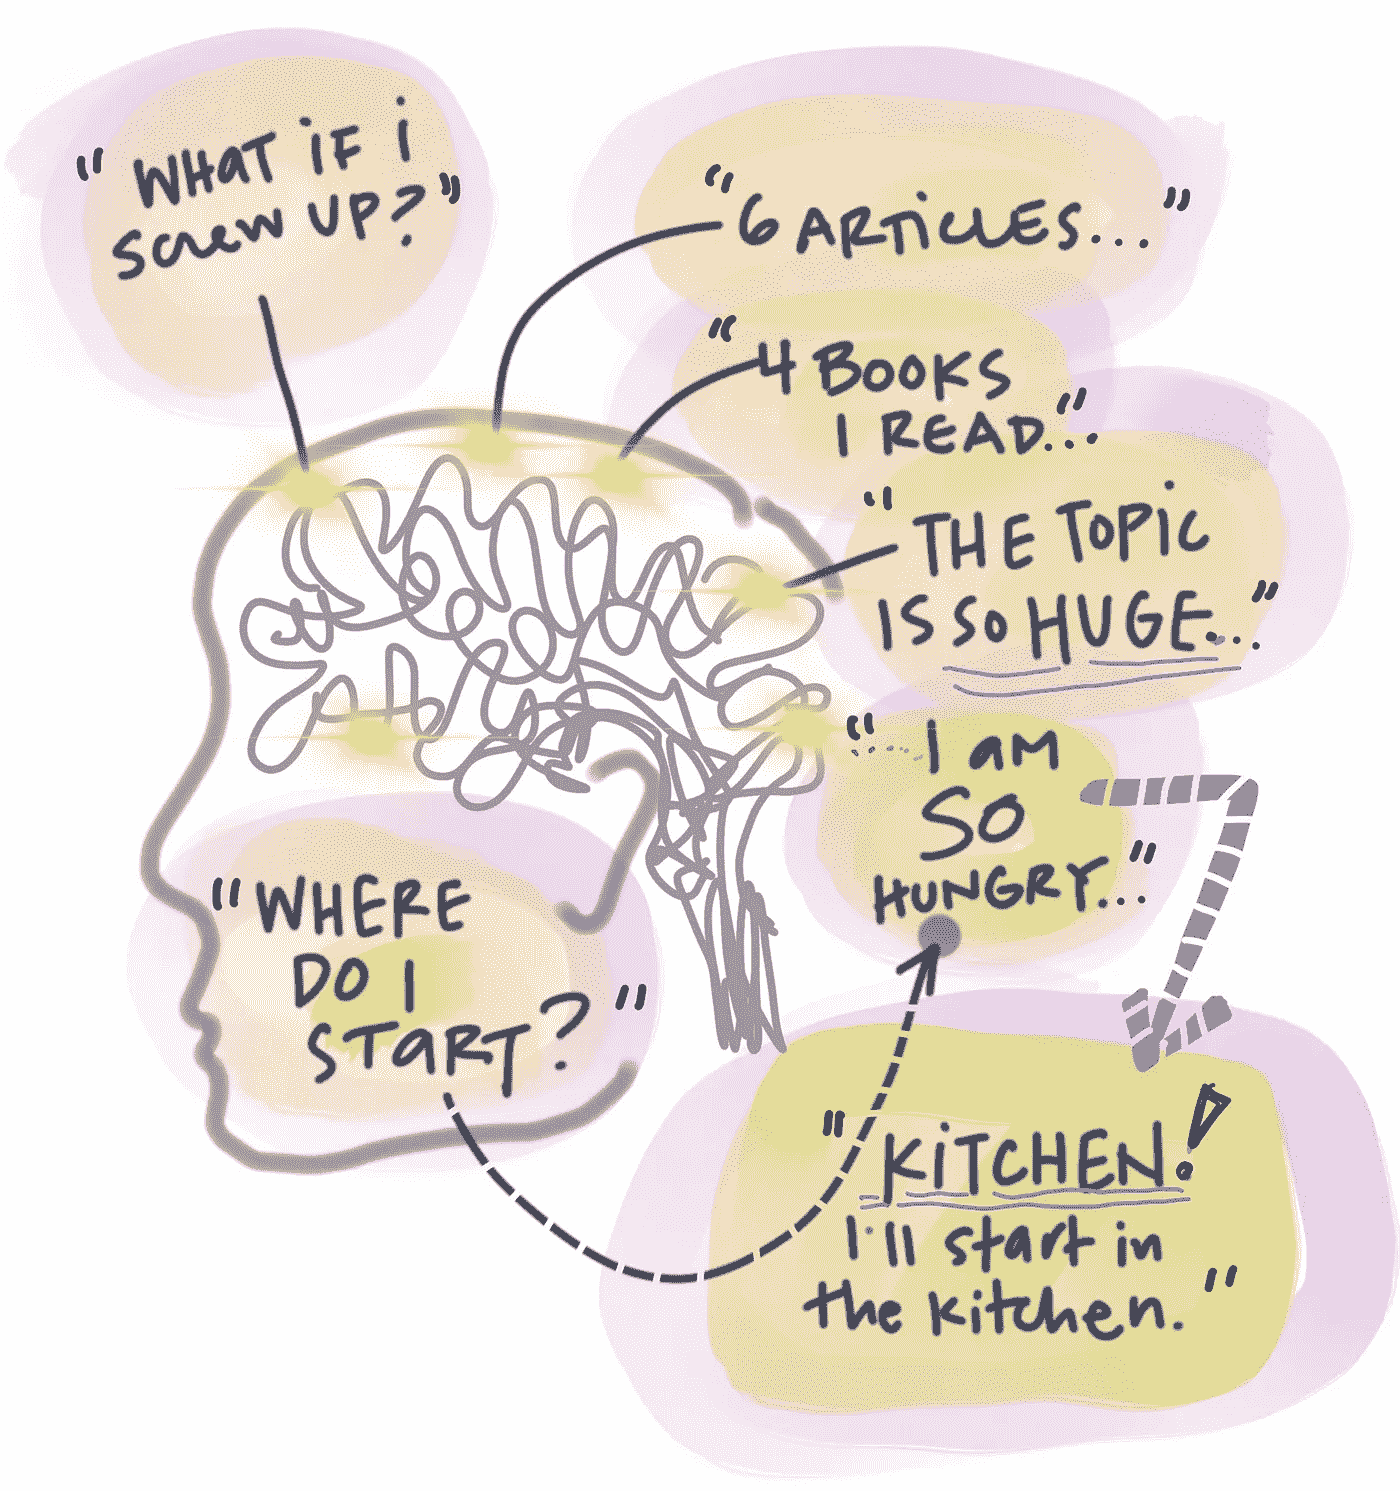 "WHAT iF i
screw UP?"
"6 ARTiCLES..."
"4 BOOKS
I READ..."
"THE TOPiC
IS SO HUGE..."
"I aM
SO
HUNGRY..."
"WHERE
DO I
START?"
"KiTCHEN!
I'll start in
the kitchen."